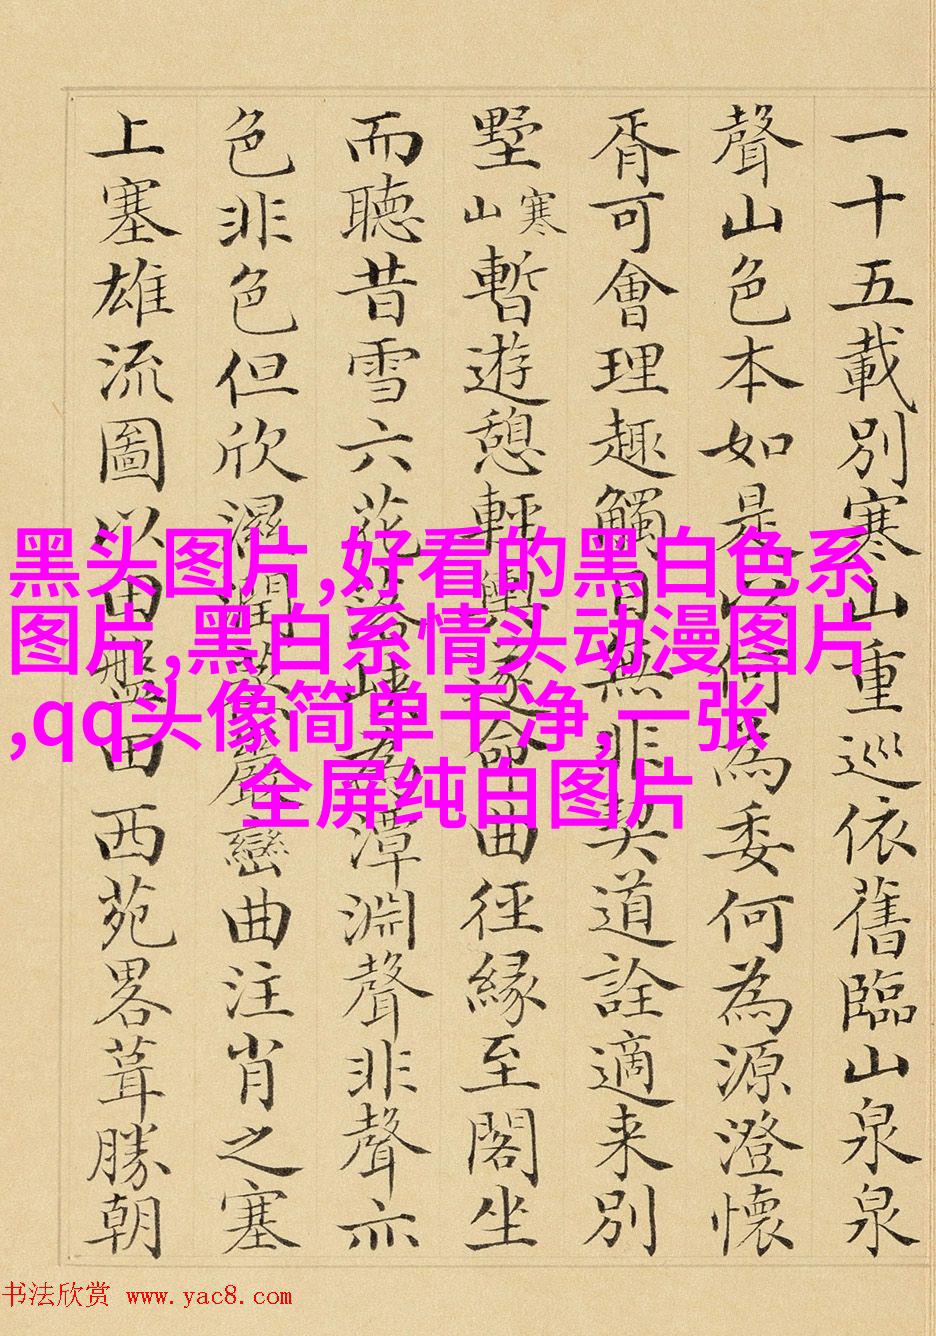 一十五載別寒山重巡依舊臨山泉泉
聲山色本如是以何為委何為源澄懷
胥可會理趣觸目無非契道詮適来別
墅寒山暫遊憩輕輿遂命曲徑縁至閣坐
而聽昔雪六花為潭淵聲非聲亦
色非色但欣濕潤巖巒曲注肖之塞
上塞雄流圖以田盤田西苑畧葺勝朝
黑头图片,好看的黑白色系
图片,黑白系情头动漫图片
,qq头像简单干净,一张
全屏纯白图片
书法欣赏 www.yac8.com